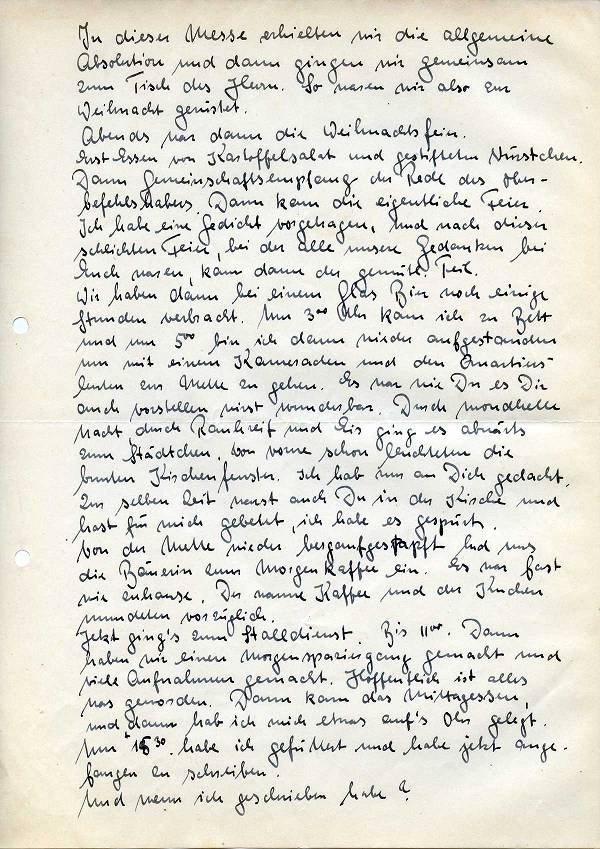 In dieser Messe erhielten wir die allgemeine
Absolution und dann gingen wir gemeinsam
zum Tisch des Herrn. So waren wir also zur
Weihnacht gerüstet.
Abends war dann die Weihnachtsfeier.
Erst Essen von Kartoffelsalat und gestifteten Würstchen.
Dann Gemeinschaftsempfang der Rede des Ober-
befehlshabers. Dann kam die eigentliche Feier.
Ich habe eine Gedicht vorgetragen, und nach dieser
schlichten Feier, bei der alle unsere Gedanken bei
Euch waren, kam dann der gemütl. Teil.
Wir haben dann bei einem Glas Bier noch einige
Stunden verbracht. Um 3⁰⁰ Uhr kam ich zu Bett
und um 5⁰⁰ bin ich dann wieder aufgestanden
um mit einem Kameraden und den Quartiers-
leuten zur Mette zu gehen. Es war wie Du es Dir
auch vorstellen wirst wunderbar. Durch mondhelle
Nacht, durch Rauhreif und Eis ging es abwärts
zum Städtchen. Von vorne schon leuchteten die
bunten Kirchenfenster. Ich hab nur an Dich gedacht.
Zur selben Zeit warst auch Du in der Kirche und
hast für mich gebetet, ich habe es gespürt.
Von der Mette wieder bergaufgestapft lud uns
die Bäuerin zum Morgenkaffee ein. Es war fast
wie zuhause. Der warme Kaffee und der Kuchen
mundeten vorzüglich.
Jetzt ging's zum Stalldienst. Bis 11⁰⁰. Dann
haben wir einen Morgenspaziergang gemacht und
viele Aufnahmen gemacht. Hoffentlich ist alles
was geworden. Dann kam das Mittagessen,
und dann hab ich mich etwas auf's Ohr gelegt.
Um ³⁰ habe ich gefüttert und habe jetzt ange-
fangen zu schreiben.
Und wenn ich geschrieben habe?